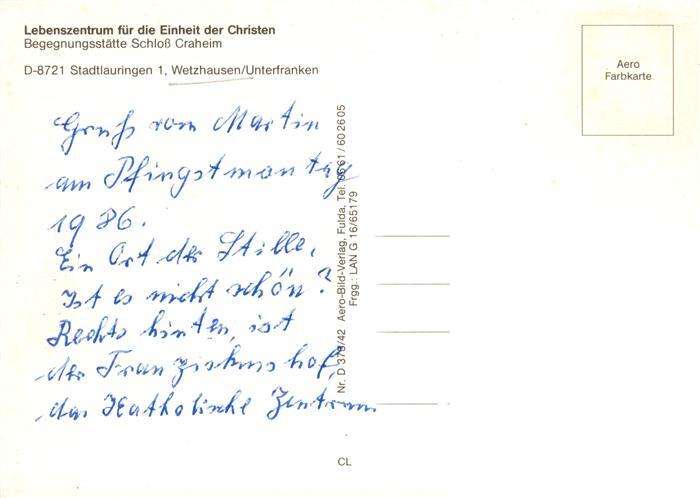 Lebenszentrum für die Einheit der Christen
Begegnungsstätte Schloß Craheim
D-8721 Stadtlauringen 1, Wetzhausen/Unterfranken
Aero
Farbkarte
Gruß vom Martin
am Pfingstmontag
1986.
Ein Ort der Stille,
Ist es nicht schön?
Rechts hinten, ist
der Franziskushof,
das Katholische Zentrum.
Nr. D 378/42 Aero-Bild-Verlag, Fulda, Tel. 06 61 / 60 26 05
Frgg.: LAN G 16/65179
CL